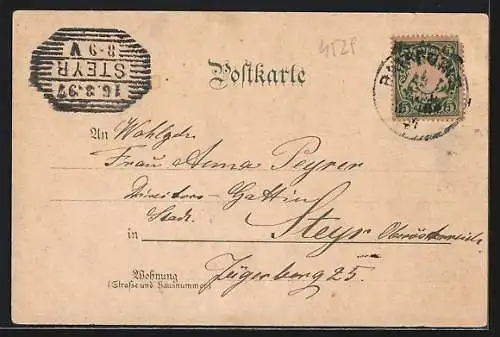 4528
16.8.97
STEYR
8-9 V
Postkarte
5 5
97
An Wohlgeb.
Frau Anna Peyrer
Direktors-Gattin
Stadt.
in Steyr Oberösterreich
Wohnung Jägerberg 25.
(Straße und Hausnummer)